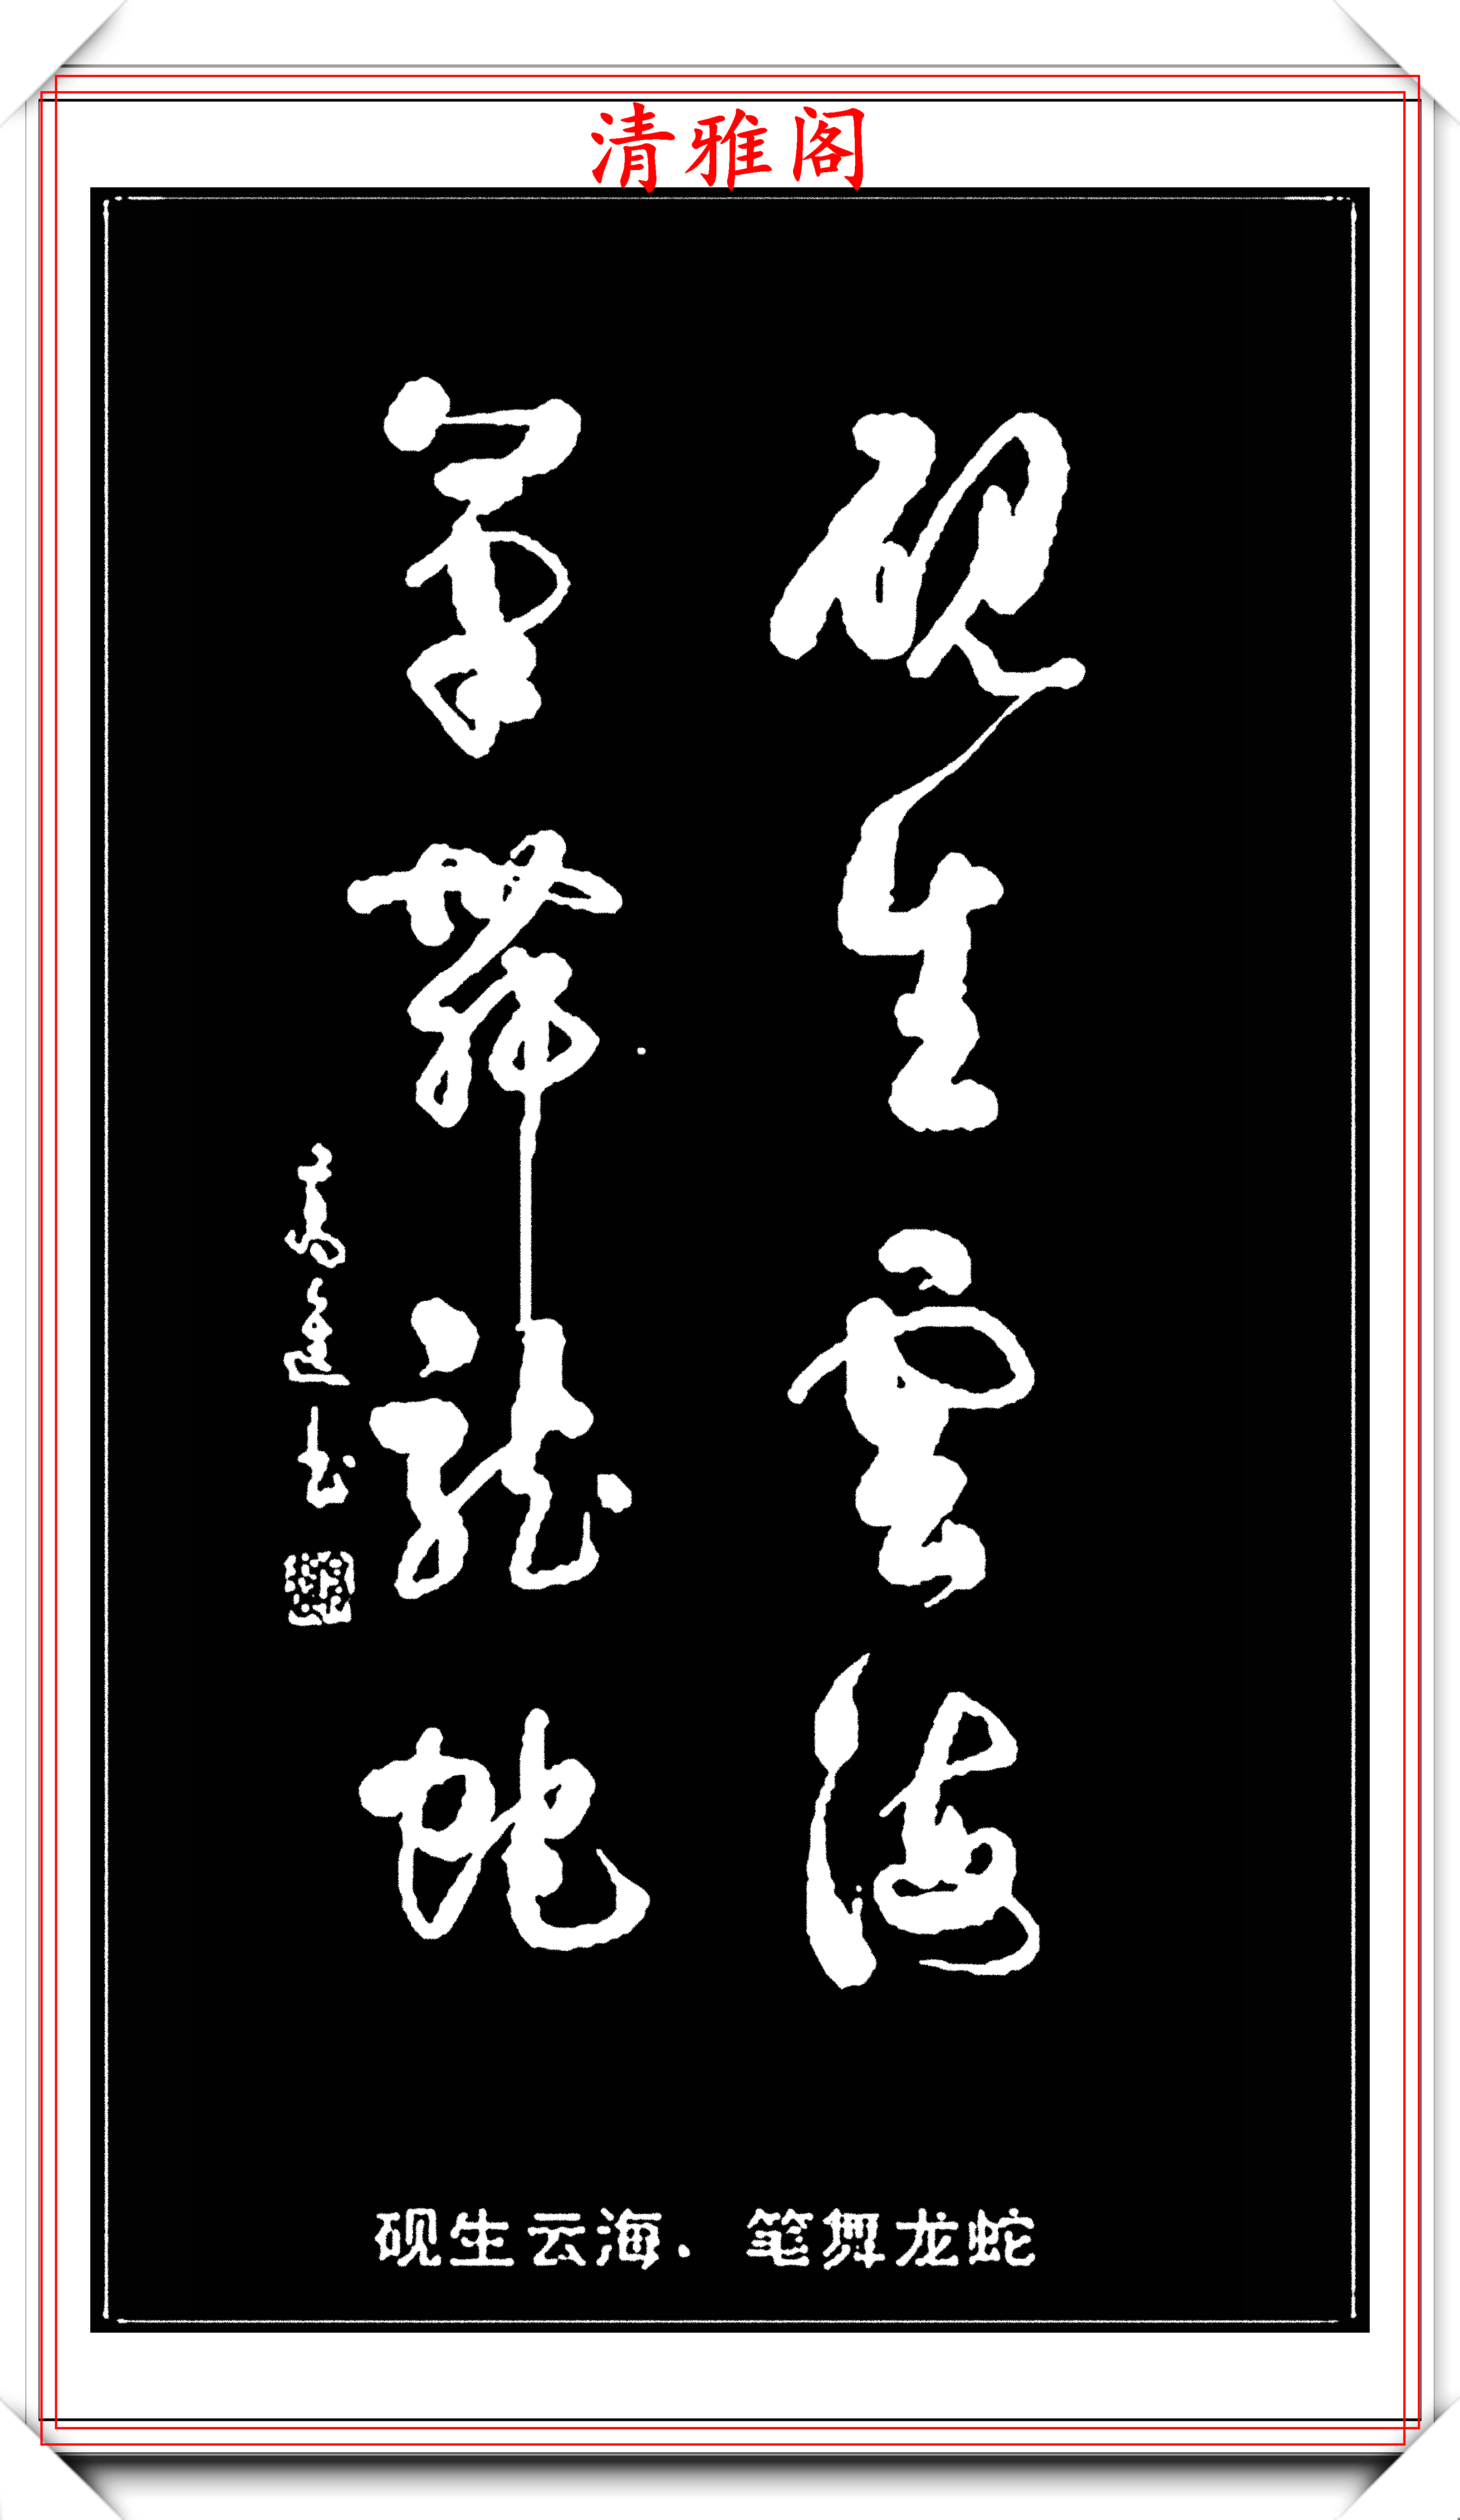 清雅阁
硯生雲海
筆舞龍蛇
砚生云海．笔舞龙蛇